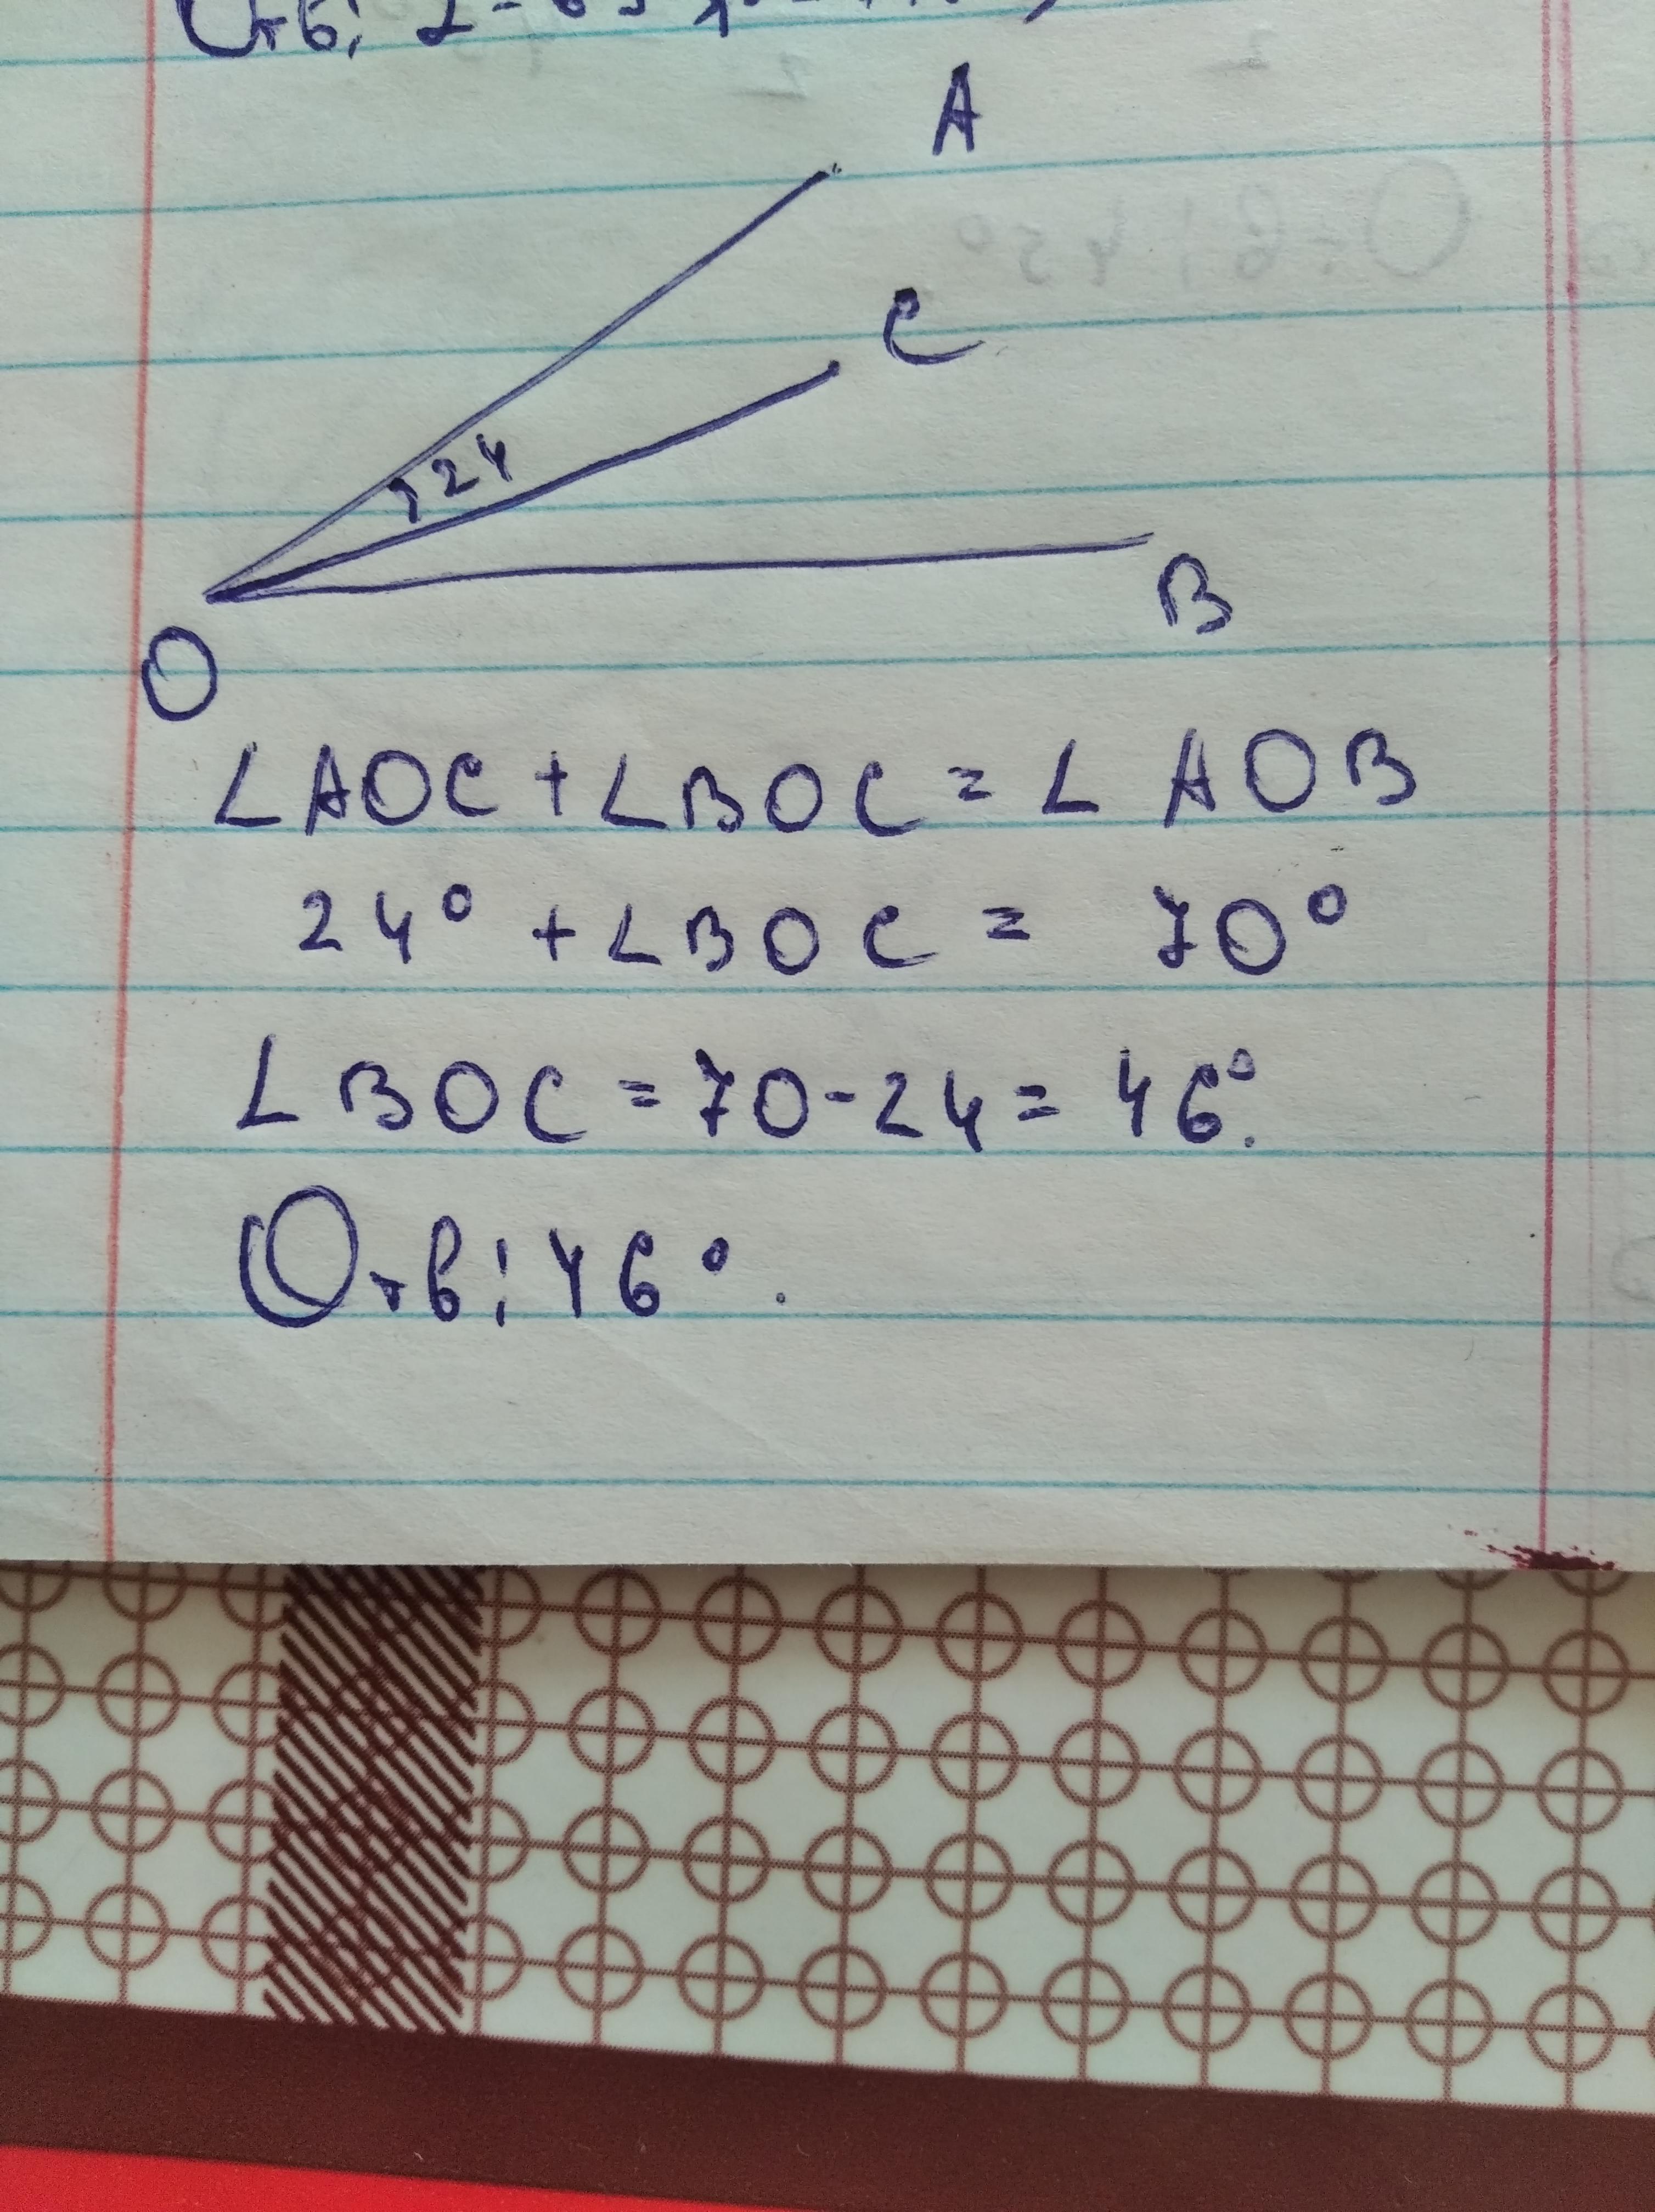 Отв:
A
C
24
B
O
∠AOC + ∠BOC = ∠ AOB
24° + ∠BOC = 70°
∠ BOC = 70-24 = 46°.
Отв: 46°.